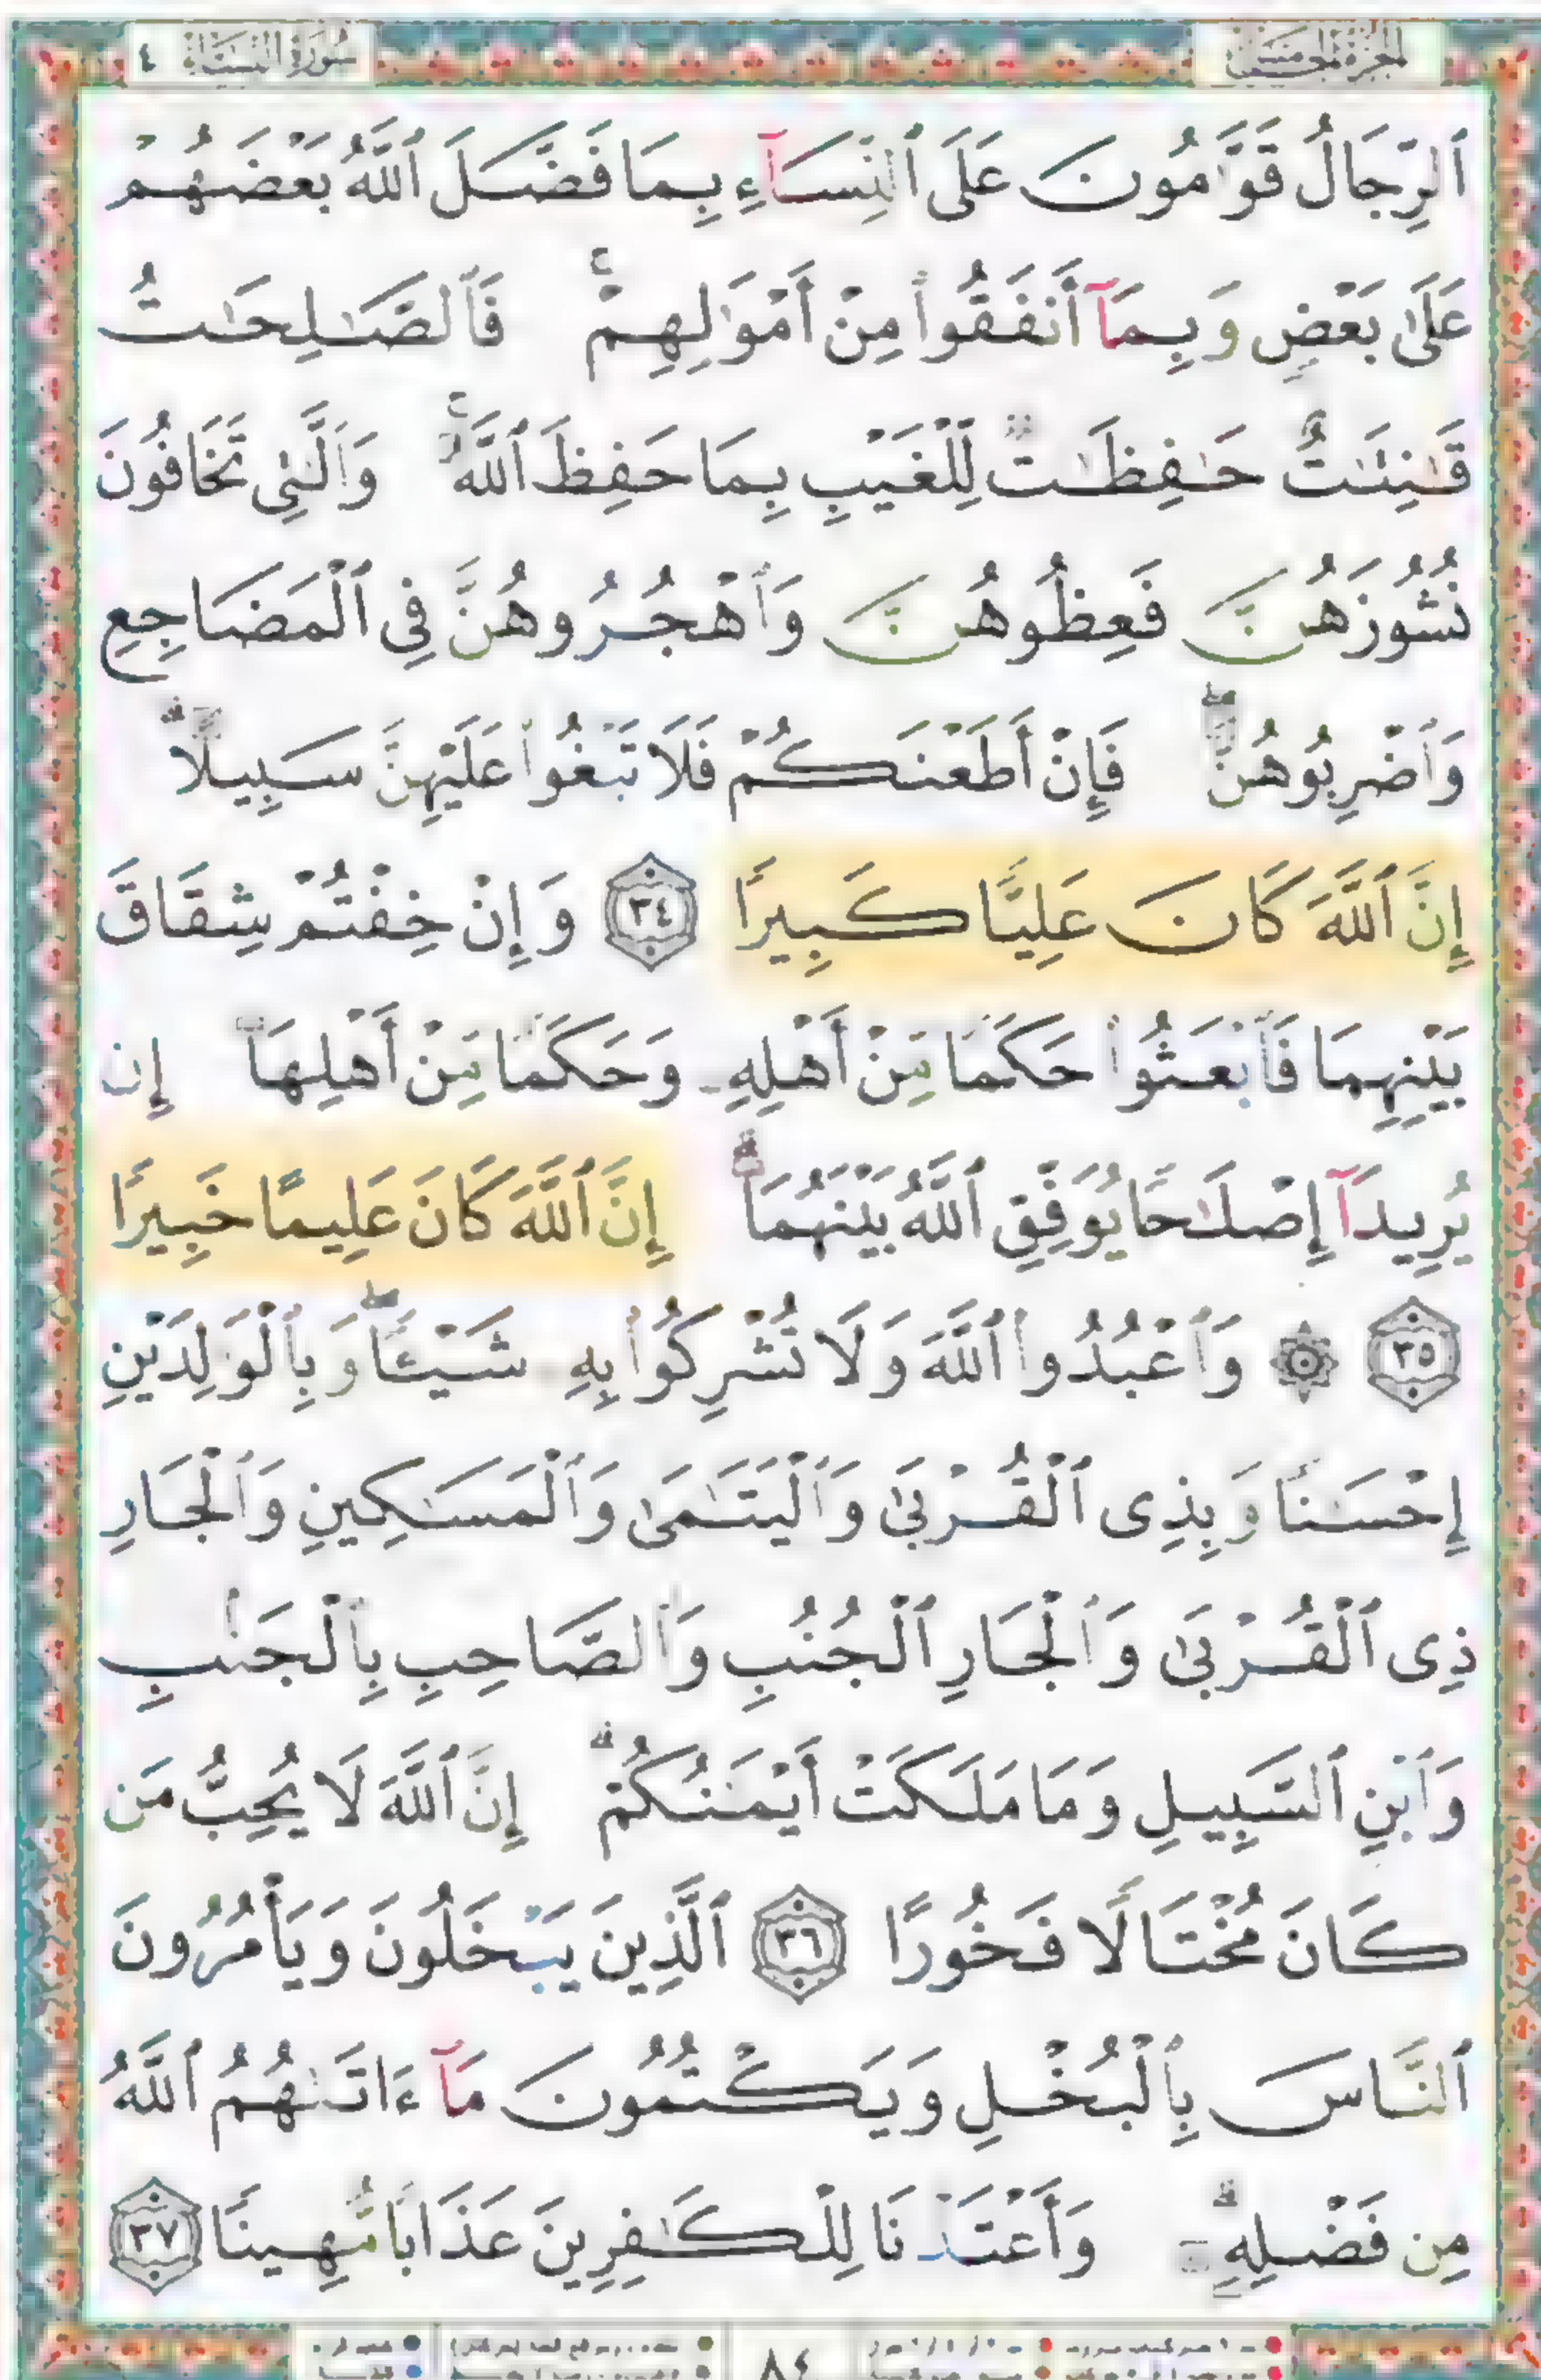 سُورَةُ النِّسَاءِ ٤
ٱلرِّجَالُ قَوَّٰمُونَ عَلَى ٱلنِّسَآءِ بِمَا فَضَّلَ ٱللَّهُ بَعْضَهُمْ
عَلَىٰ بَعْضٍ وَبِمَآ أَنفَقُوا۟ مِنْ أَمْوَٰلِهِمْ ۚ فَٱلصَّـٰلِحَـٰتُ
قَـٰنِتَـٰتٌ حَـٰفِظَـٰتٌ لِّلْغَيْبِ بِمَا حَفِظَ ٱللَّهُ ۚ وَٱلَّـٰتِى تَخَافُونَ
نُشُوزَهُنَّ فَعِظُوهُنَّ وَٱهْجُرُوهُنَّ فِى ٱلْمَضَاجِعِ
وَٱضْرِبُوهُنَّ ۖ فَإِنْ أَطَعْنَكُمْ فَلَا تَبْغُوا۟ عَلَيْهِنَّ سَبِيلًا ۗ
إِنَّ ٱللَّهَ كَانَ عَلِيًّا كَبِيرًا ٣٤ وَإِنْ خِفْتُمْ شِقَاقَ
بَيْنِهِمَا فَٱبْعَثُوا۟ حَكَمًا مِّنْ أَهْلِهِۦ وَحَكَمًا مِّنْ أَهْلِهَآ إِن
يُرِيدَآ إِصْلَـٰحًا يُوَفِّقِ ٱللَّهُ بَيْنَهُمَآ ۗ إِنَّ ٱللَّهَ كَانَ عَلِيمًا خَبِيرًا
٣٥ ۞ وَٱعْبُدُوا۟ ٱللَّهَ وَلَا تُشْرِكُوا۟ بِهِۦ شَيْـًٔا ۖ وَبِٱلْوَٰلِدَيْنِ
إِحْسَـٰنًا وَبِذِى ٱلْقُرْبَىٰ وَٱلْيَتَـٰمَىٰ وَٱلْمَسَـٰكِينِ وَٱلْجَارِ
ذِى ٱلْقُرْبَىٰ وَٱلْجَارِ ٱلْجُنُبِ وَٱلصَّاحِبِ بِٱلْجَنۢبِ
وَٱبْنِ ٱلسَّبِيلِ وَمَا مَلَكَتْ أَيْمَـٰنُكُمْ ۗ إِنَّ ٱللَّهَ لَا يُحِبُّ مَن
كَانَ مُخْتَالًا فَخُورًا ٣٦ ٱلَّذِينَ يَبْخَلُونَ وَيَأْمُرُونَ
ٱلنَّاسَ بِٱلْبُخْلِ وَيَكْتُمُونَ مَآ ءَاتَىٰهُمُ ٱللَّهُ
مِن فَضْلِهِۦ ۗ وَأَعْتَدْنَا لِلْكَـٰفِرِينَ عَذَابًا مُّهِينًا ٣٧
٨٤